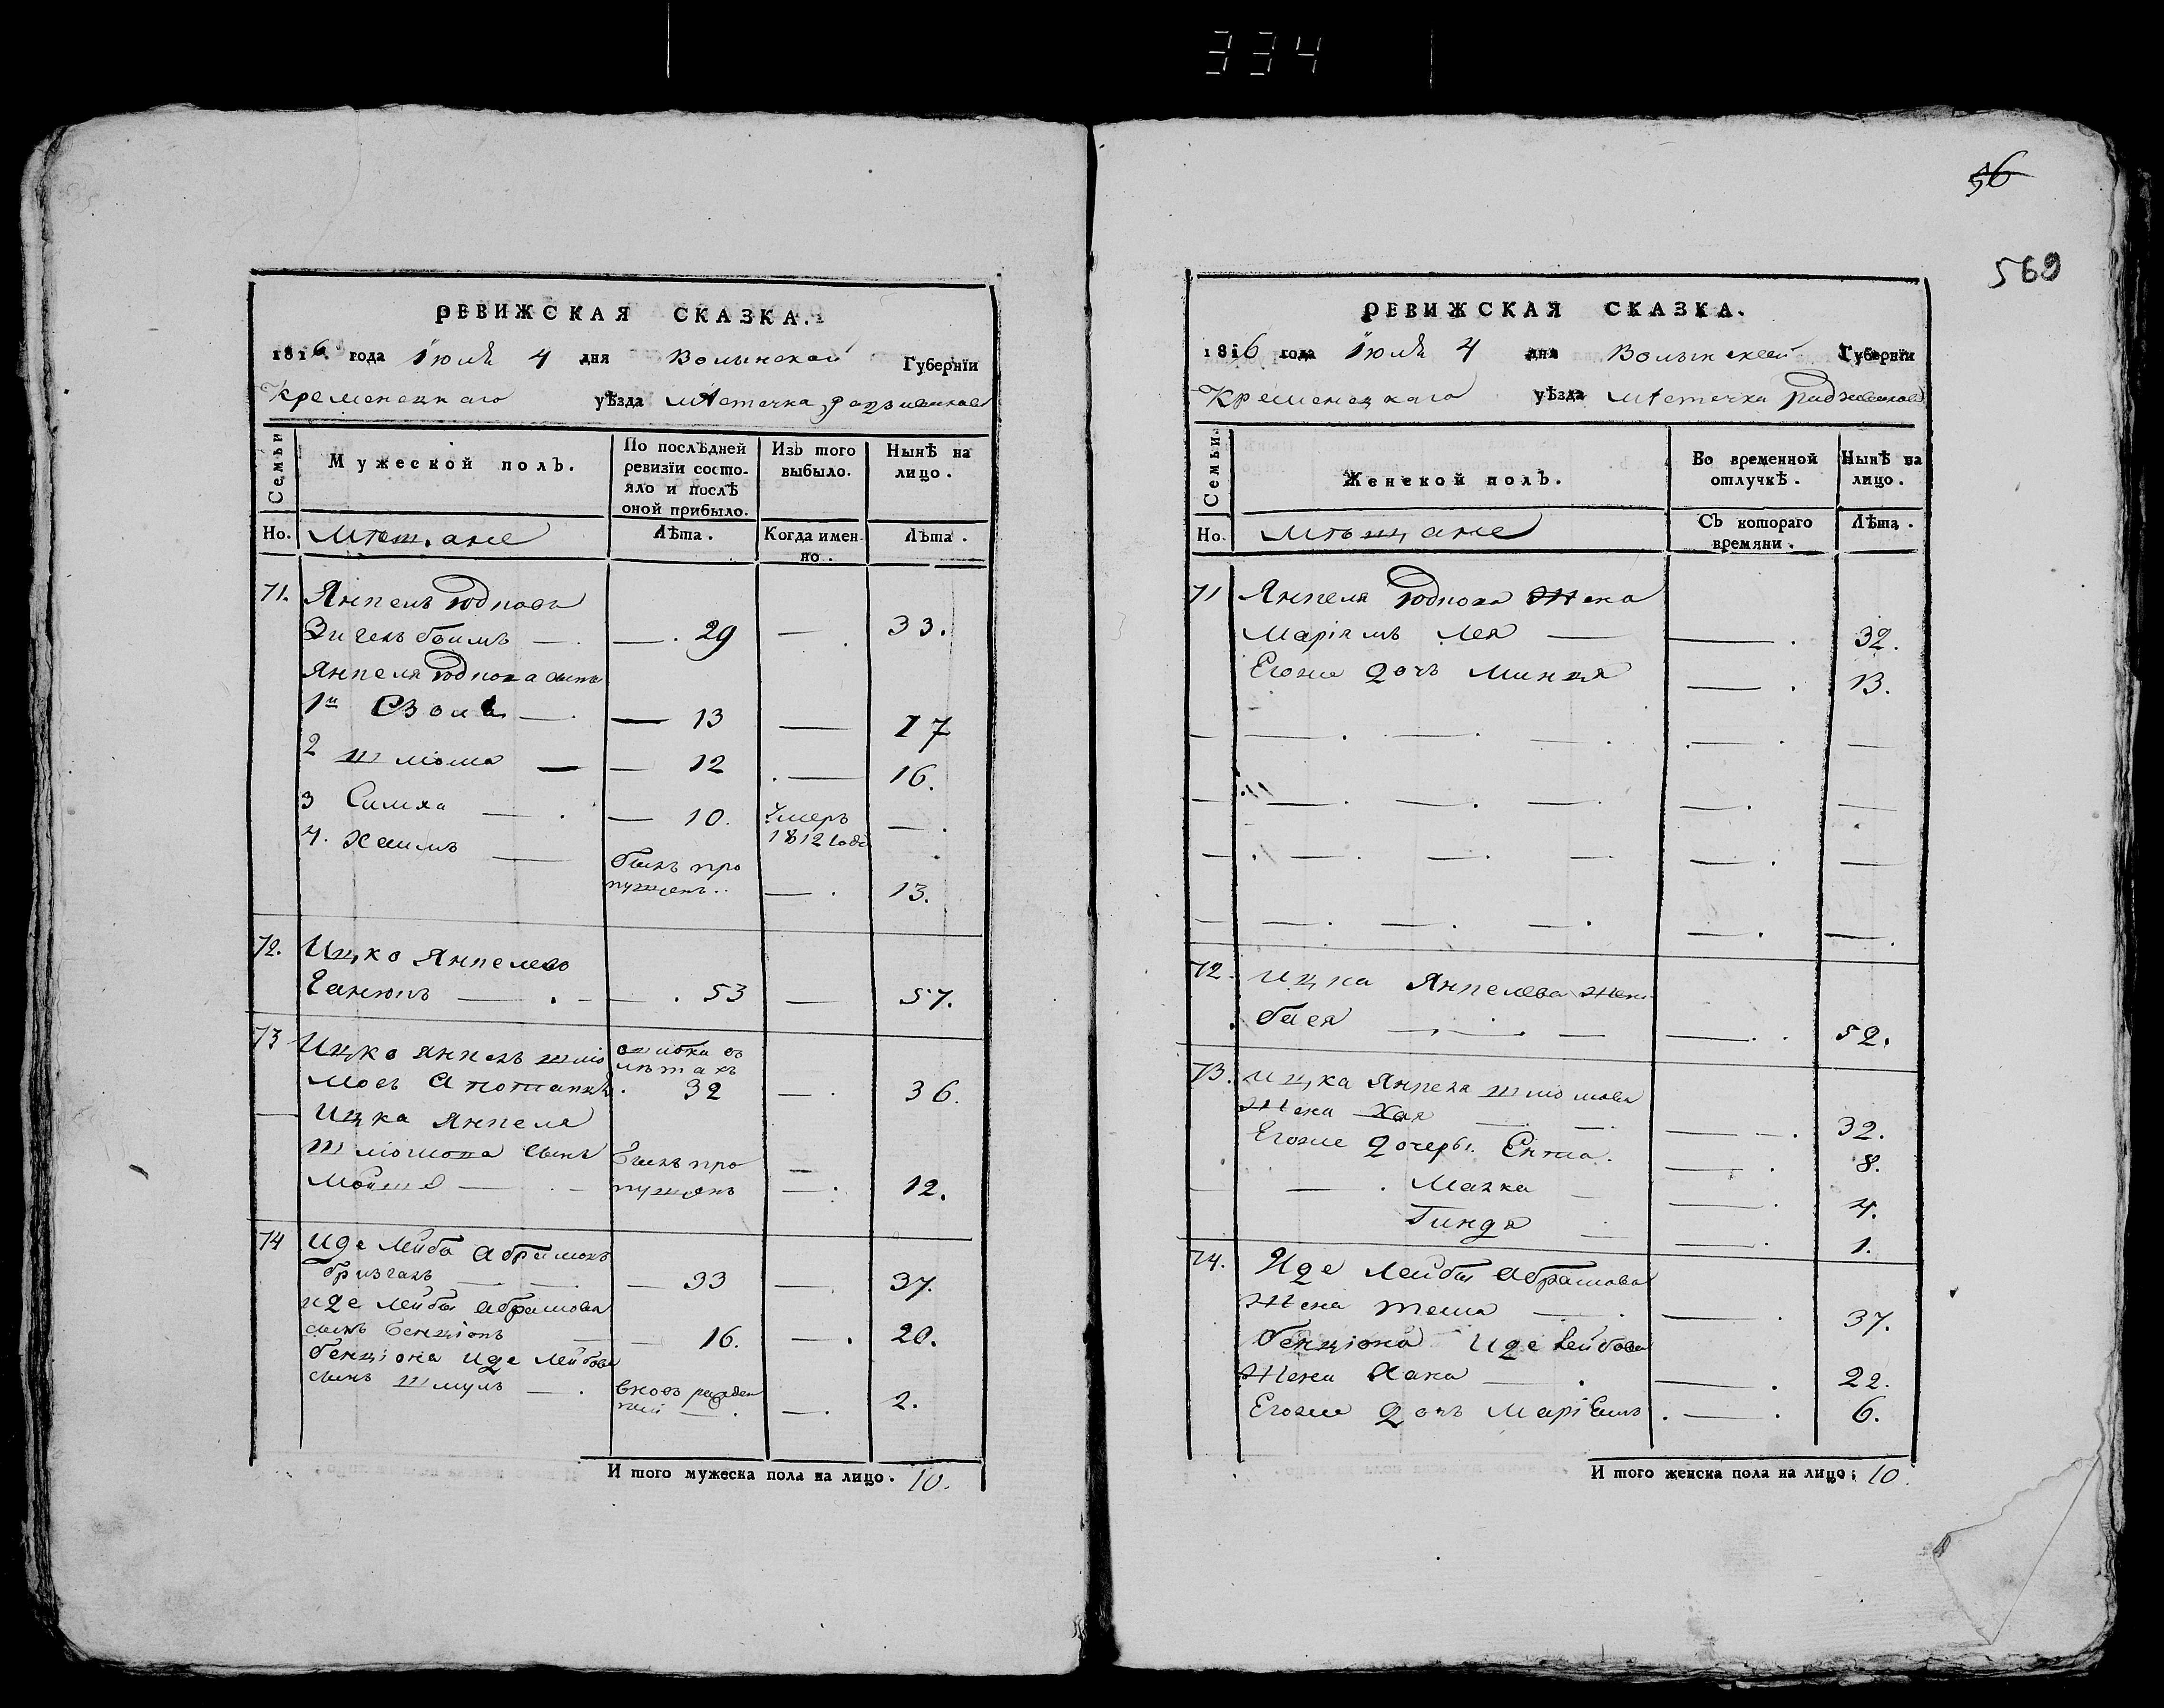 334
56
569
РЕВИЖСКАЯ СКАЗКА.
1816. года Іюля 4 дня Волынской Губернїи
Кременецкаго уѣзда мѣстечка
Семьи
Мужеской полъ.
По послѣдней ревизїи состояло и послѣ оной прибыло.
Изъ того выбыло.
Нынѣ на лицо.
Но. Мѣщане Лѣта. Когда именно. Лѣта.
71. Янкель Юдковъ
— . 29 — . 33.
Янкеля Юдкова сынъ
1й — 13 — 17
2 Шліома — — 12 . — 16.
3 Симха — . — 10. Умеръ 1812 года — .
4. Хаимъ — былъ пропущенъ.. — . 13.
72. Ицко Янкелевъ
— . — . 53 — 57.
73 Ицко Янкель Шліо ошибка въ
мовъ лѣтахъ . 32 — . 36.
Ицка Янкеля
Шліомова сынъ былъ про —
Мойше — пущенъ — . 12.
74 Иде Лейба Абрамовъ
— — 33 — . 37.
Иде Лейбы Абрамова
сынъ Бенціонъ — — 16. — . 20.
Бенціона Иде Лейбова
сынъ Шмуль — . вновь рожденный — . — . 2.
И того мужеска пола на лицо. 10.
РЕВИЖСКАЯ СКАЗКА.
1816 года Іюля 4 дня Волынской Губернїи
Кременецкаго уѣзда мѣстечка
Семьи.
Женской полъ.
Во временной отлучкѣ.
Нынѣ на лицо.
Но. Мѣщане Съ котораго времяни. Лѣта.
71 Янкеля Юдкова жена
Маріямъ Лея — — . 32.
Егоже дочь — . 13.
72. Ицка Янкелева жена
Бася — . — — . . 52.
73. Ицка Янкеля Шліомова
жена Хая — — — . 32.
Егоже дочеры. Ента. — . 8.
— . Малка — — . 4.
Гиндя — . 1.
74. Иде Лейбы Абрамова
жена — . — . 37.
Бенціона Иде Лейбова
жена Хана — . — . 22.
Егоже дочь Маріемъ . — . 6.
И того женска пола на лицо; 10.